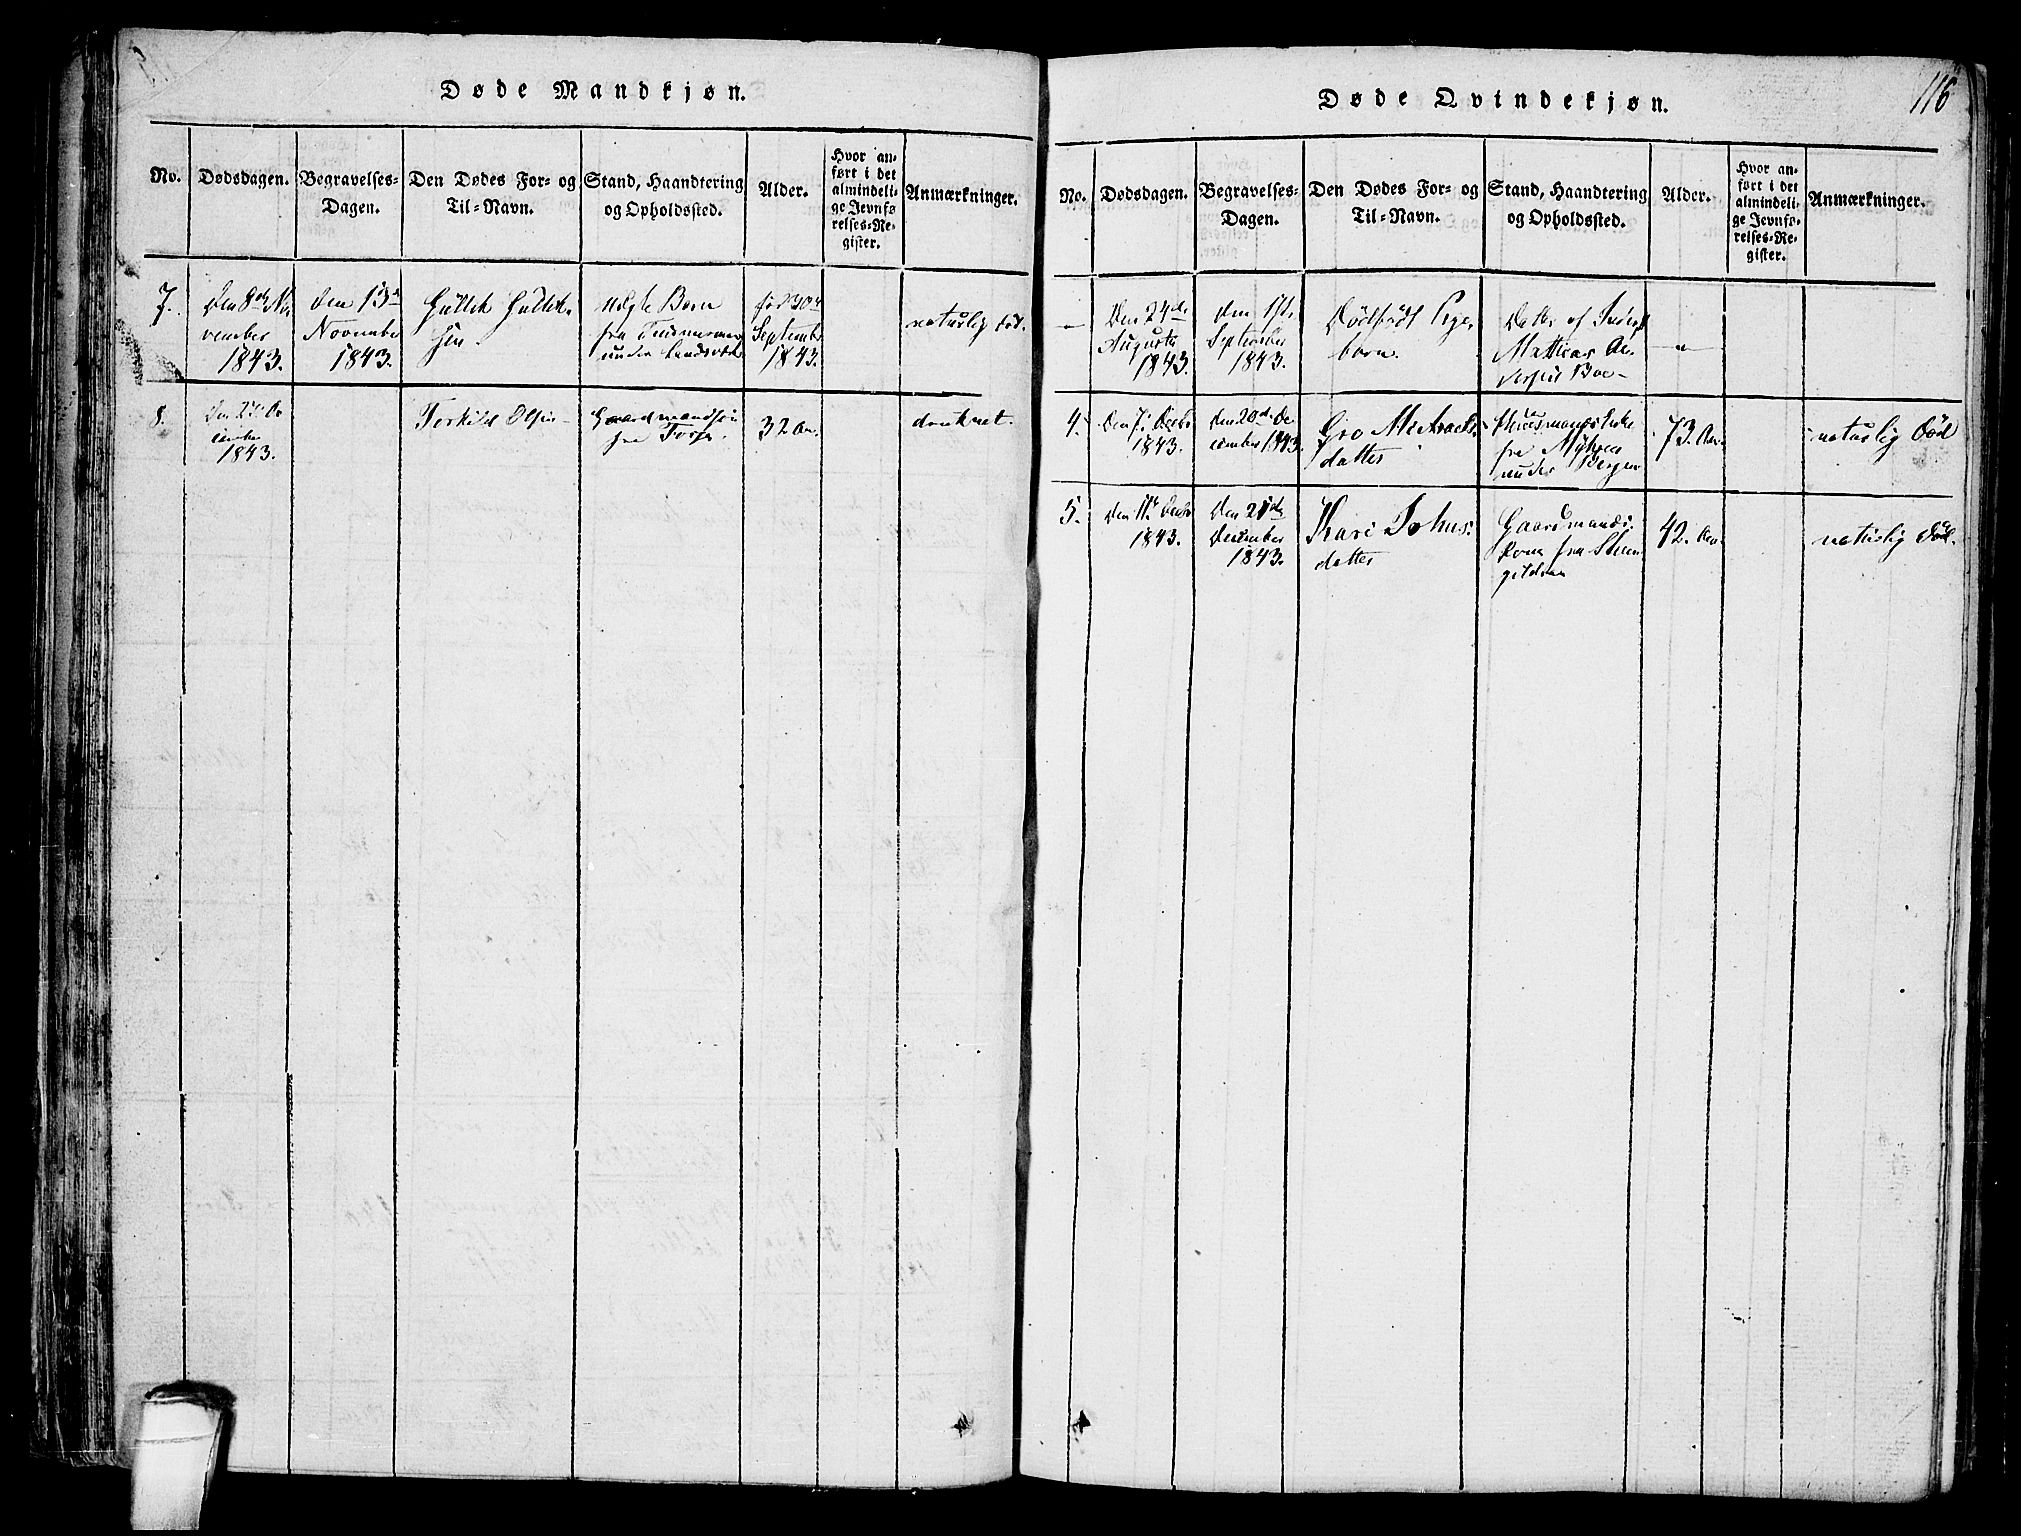 Døde Mandkjøn.
No.
Dødsdagen.
Begravelses-
Dagen.
Den Dødes For- og
Til-Navn.
Stand, Haandtering
og Opholdssted.
Alder.
Hvor an-
ført i det
almindeli-
ge Jevnfø
relses-Re-
gister.
Anmærkninger.
7.
Den 8de No-
vember
1843.
Den 13de
November
1843.
Gullik Gullik-
sen.
Børn
fra
under
fød 30te
September
1843.
naturlig død.
8.
Den
1843.
Torkild Olsen
Gaardmandssøn
fra
32 Aar.
druknet.
116
Døde Qvindekjøn.
No.
Dødsdagen.
Begravelses-
Dagen.
Den Dødes For- og
Til-Navn.
Stand, Haandtering
og Opholdssted.
Alder.
Hvor an-
ført i det
almindeli-
ge Jevnfø-
relses-Re-
gister.
Anmærkninger.
—
Den 24de
Augusti
1843.
Den
September
1843.
Dødfødt Pige-
barn.
Datter af
Mathias An-
—"—
4.
Den 7de Decbr
1843.
Den 20de De
cember 1843.
Gro Michaels-
datter
fra
under Bergan
73 Aar.
naturlig Død
5.
Den 11te Decbr
1843.
Den 21de
December
1843.
Kari Johns-
datter
Gaardmands-
Kone fra
42 Aar.
naturlig Død.